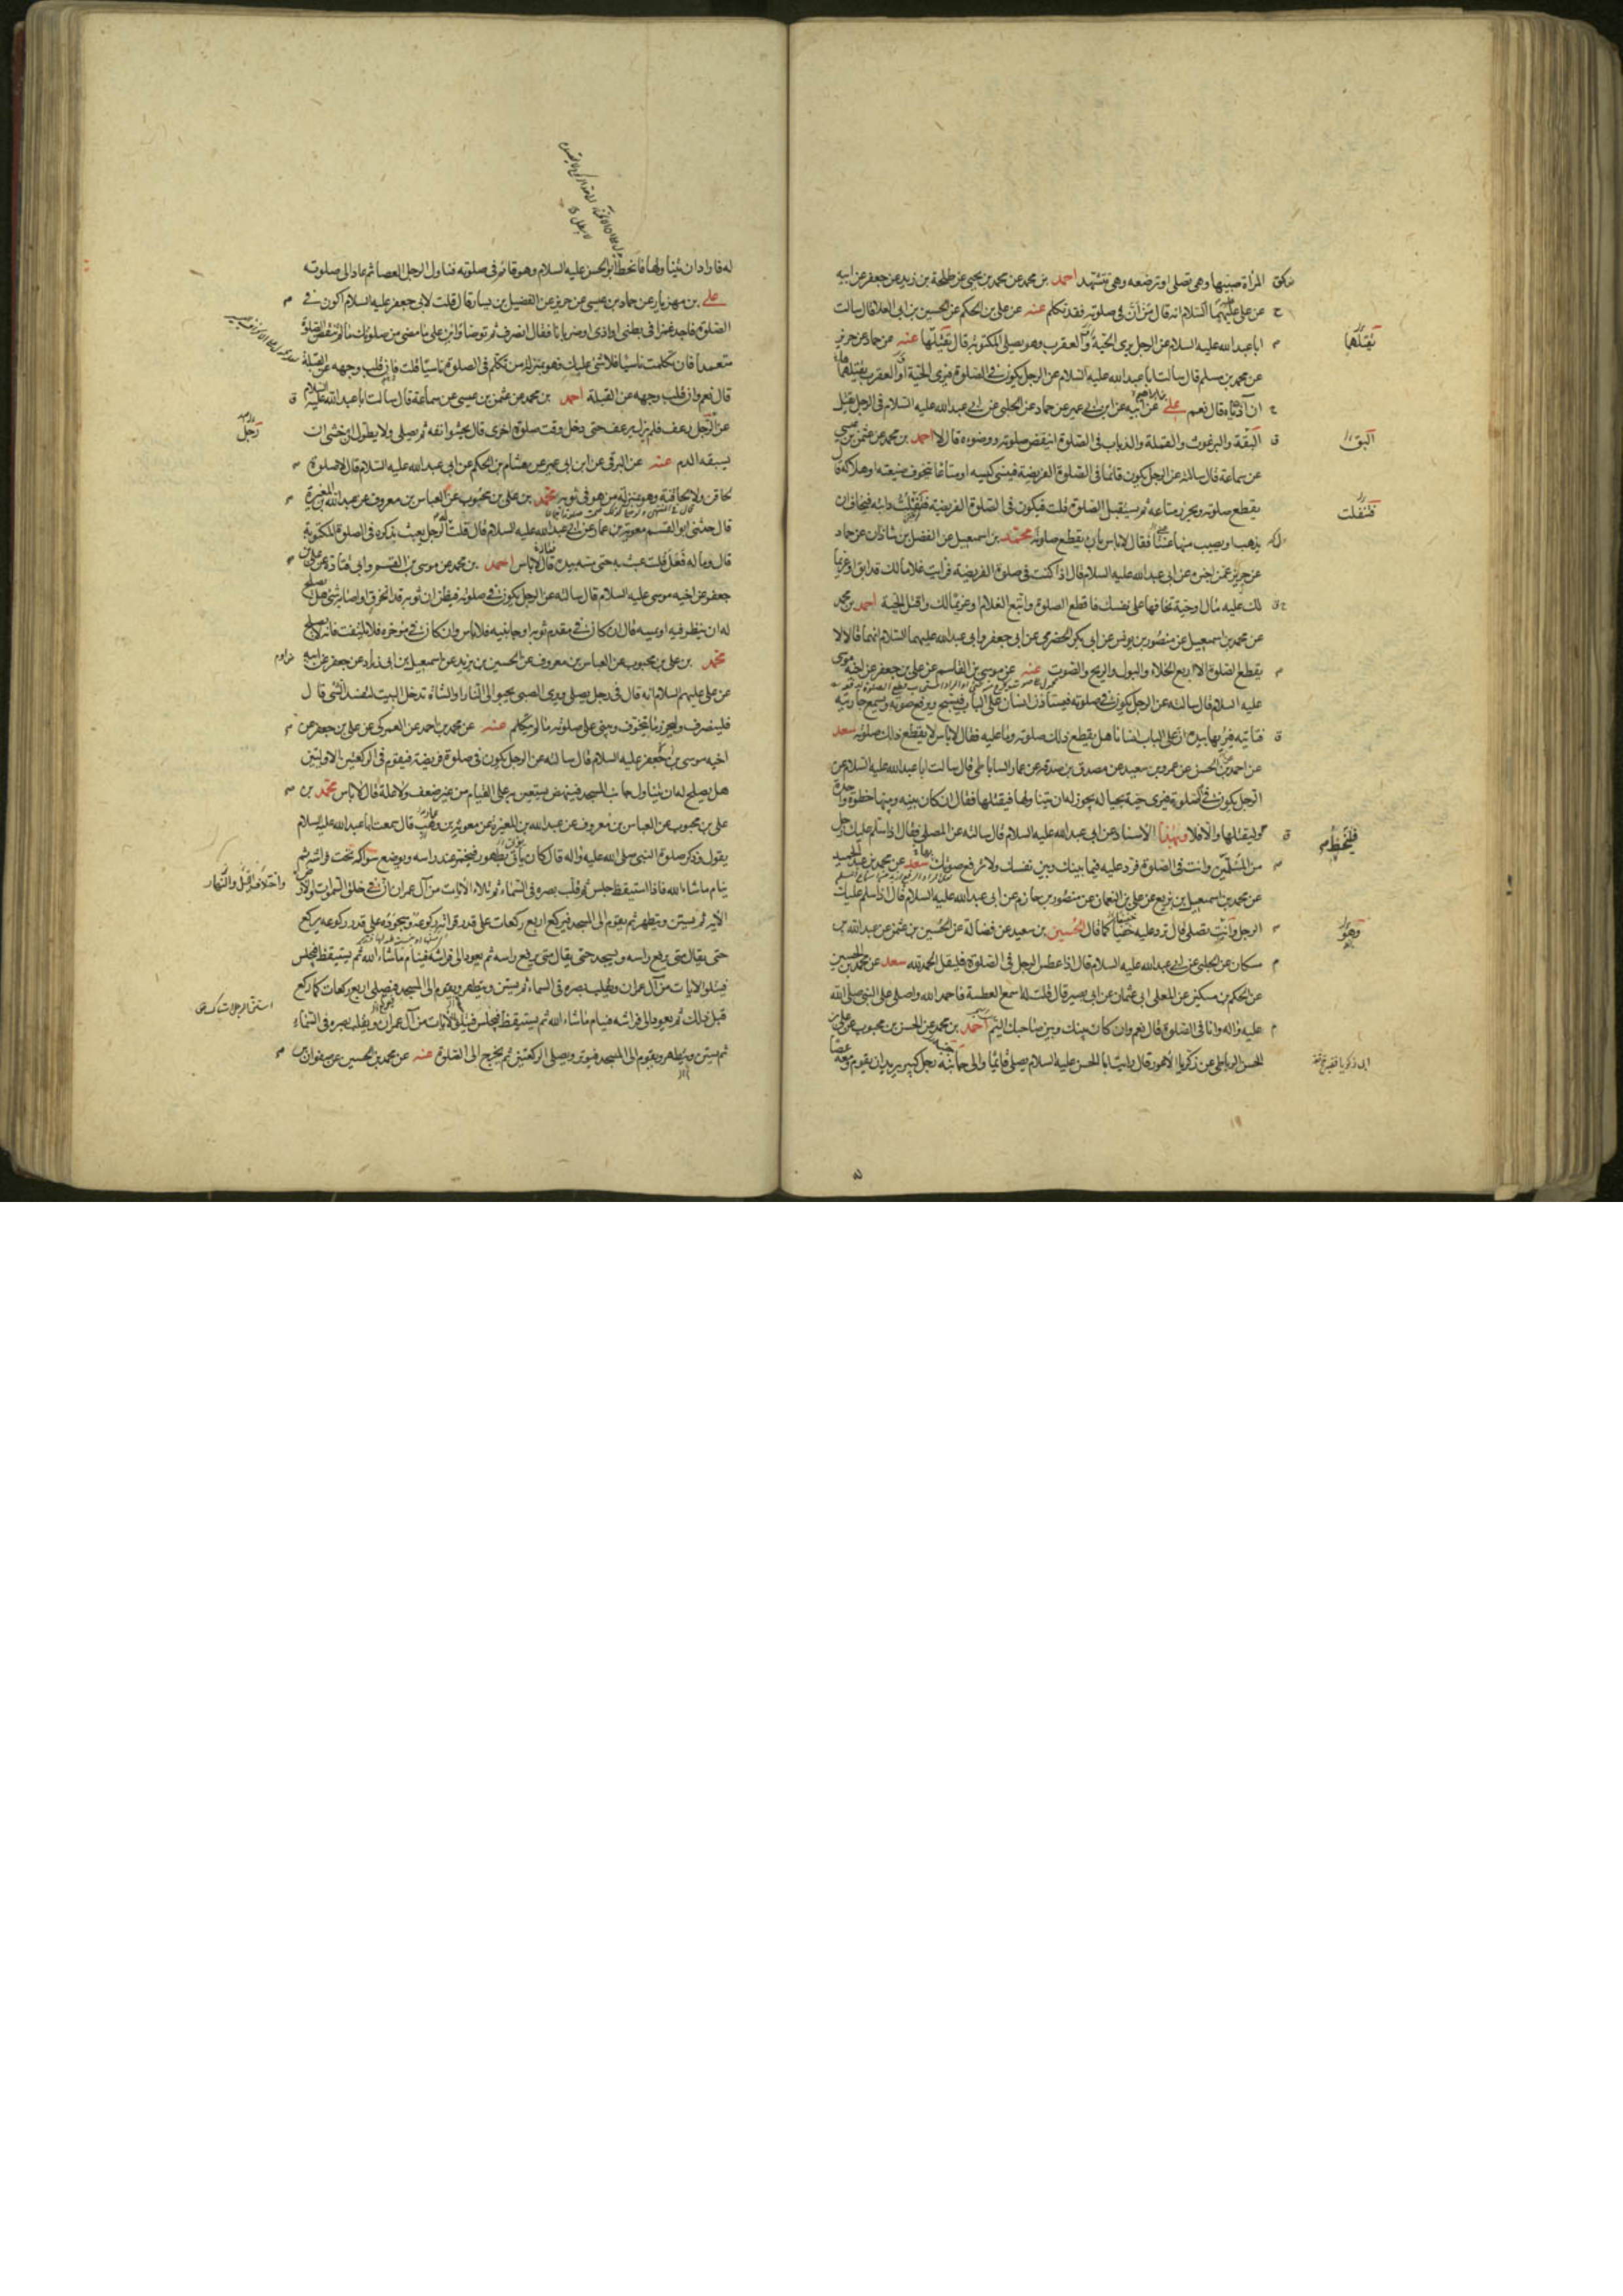 المرأة صبيها وهي تصلي او ترضعه وهي تتشهد احمد بن محمد عن محمد بن يحيى عن طلحة بن زيد عن جعفر عن ابيه
عن علي عليهما السلام انه قال من أنّ في صلوته فقد تكلم عنه عن علي بن الحكم عن الحسين بن ابي العلا قال سالت
ابا عبد الله عليه السلام عن الرجل يرى الحية والعقرب وهو يصلي المكتوبة قال يقتلها عنه عن حماد عن حريز
يقتلهما
عن محمد بن مسلم قال سالت ابا عبد الله عليه السلام عن الرجل يكون في الصلوة فيرى الحية او العقرب يقتلهما
ان آذياه قال نعم علي عن ابيه عن ابن ابي عمير عن حماد عن الحلبي عن ابي عبد الله عليه السلام في الرجل يقتل
البقة والبرغوث والقملة والذباب في الصلوة اينقض صلوته ووضوءه قال لا احمد بن محمد عن عثمن بن عيسى
البق
عن سماعة قال سالته عن الرجل يكون قائما في الصلوة الفريضة فينسى كيسه او متاعا يتخوف ضيعته او هلاكه قال
يقطع صلوته ويحرز متاعه ثم يستقبل الصلوة قلت فيكون في الصلوة الفريضة فتفلت دابته فيخاف ان
فتفلت
يذهب او يصيب منها عنتا فقال لا باس بان يقطع صلوته محمد بن اسمعيل عن الفضل بن شاذان عن حماد
عن حريز عمن اخبره عن ابي عبد الله عليه السلام قال اذا كنت في صلوة الفريضة فرايت غلاما لك قد ابق او غريما
لك عليه مال او حية تخافها على نفسك فاقطع الصلوة واتبع الغلام او غريما لك واقتل الحية احمد بن محمد
عن محمد بن اسمعيل عن منصور بن يونس عن ابي بكر الحضرمي عن ابي جعفر وابي عبد الله عليهما السلام انهما قالا لا
يقطع الصلوة الا اربع الخلاء والبول والريح والصوت عنه عن موسى بن القاسم عن علي بن جعفر عن اخيه موسى
عليه السلام قال سالته عن الرجل يكون في صلوته فيستأذن انسان على الباب فيسبح ويرفع صوته ويسمع جاريته
فتأتيه فيريها بيده ان على الباب انسانا هل يقطع ذلك صلوته وما عليه فقال لا باس لا يقطع ذلك صلوته سعد
عن احمد بن الحسن عن عمرو بن سعيد عن مصدق بن صدقة عن عمار الساباطي قال سالت ابا عبد الله عليه السلام عن
الرجل يكون في الصلوة فيرى حية بحياله يجوز له ان يتناولها فيقتلها فقال ان كان بينه وبينها خطوة واحدة
فليخط وليقتلها والا فلا وبهذا الاسناد عن ابي عبد الله عليه السلام قال سالته عن المصلي فقال اذا سلم عليك رجل
من المسلمين وانت في الصلوة فرد عليه فيما بينك وبين نفسك ولا ترفع صوتك سعد عن محمد بن عبد الحميد
عن محمد بن اسمعيل بن بزيع عن علي بن النعمان عن منصور بن حازم عن ابي عبد الله عليه السلام قال اذا سلم عليك
الرجل وانت تصلي قال ترد عليه خفيا كما قال الحسين بن سعيد عن فضالة عن الحسين بن عثمن عن عبد الله بن
وهو
مسكان عن الحلبي عن ابي عبد الله عليه السلام قال اذا عطس الرجل في الصلوة فليقل الحمد لله سعد عن محمد بن الحسين
عن الحكم بن مسكين عن المعلى ابي عثمان عن ابي بصير قال قلت له اسمع العطسة فاحمد الله واصلي على النبي صلى الله
عليه واله وانا في الصلوة قال نعم وان كان بينك وبين صاحبك اليم احمد بن محمد عن الحسن بن محبوب عن علي بن
الحسن الرباطي عن زكريا الاعور قال رايت ابا الحسن عليه السلام يصلي قائما والى جانبه رجل كبير يريد ان يقوم ومعه عصا
له فاراد ان يتناولها فانحط ابو الحسن عليه السلام وهو قائم في صلوته فناول الرجل العصا ثم عاد الى صلوته
علي بن مهزيار عن حماد بن عيسى عن حريز عن الفضيل بن يسار قال قلت لابي جعفر عليه السلام اكون في
الصلوة فاجد غمزا في بطني او اذى او ضربانا فقال انصرف ثم توضا وابن على ما مضى من صلوتك ما لم تنقض الصلوة
متعمدا فان تكلمت ناسيا فلا شئ عليك فهو بمنزلة من تكلم في الصلوة ناسيا قلت فان قلب وجهه عن القبلة
قال نعم وان قلب وجهه عن القبلة احمد بن محمد عن عثمن بن عيسى عن سماعة قال سالت ابا عبد الله عليه السلام
عن الرجل يرعف فلم يزل يرعف حتى دخل وقت صلوة اخرى قال يحشو انفه ثم يصلي ولا يطول ان خشي ان
رجل
يسبقه الدم عنه عن البرقي عن ابن ابي عمير عن هشام بن الحكم عن ابي عبد الله عليه السلام قال لا صلوة
لحاقن ولا لحاقنة وهو بمنزلة من هو في ثوبه محمد بن علي بن محبوب عن العباس بن معروف عن عبد الله بن المغيرة
قال حدثني ابو القسم معوية بن عمار عن ابي عبد الله عليه السلام قال قلت له الرجل يعبث بذكره في الصلوة المكتوبة
قال وما له فعل قلت عبث به حتى مسه بيده قال لا باس احمد بن محمد عن موسى بن القسم وابي قتادة عن علي بن
جعفر عن اخيه موسى عليه السلام قال سالته عن الرجل يكون في صلوته فيظن ان ثوبه قد انخرق او اصابه شئ هل يصلح
له ان ينظر فيه او يمسه قال ان كان في مقدم ثوبه او جانبيه فلا باس وان كان في مؤخره فلا يلتفت فانه لا يصلح
محمد بن علي بن محبوب عن العباس بن معروف عن الحسين بن يزيد عن اسمعيل بن ابي زياد عن جعفر عن ابيه
عن علي عليهم السلام انه قال في رجل يصلي ويرى الصبي يحبو الى النار او الشاة تدخل البيت لتفسد الشئ قال
فلينصرف وليحرز ما يتخوف ويبني على صلوته ما لم يتكلم عنه عن محمد بن احمد عن العمركي عن علي بن جعفر عن
اخيه موسى بن جعفر عليه السلام قال سالته عن الرجل يكون في صلوة فريضة فيقوم في الركعتين الاوليين
هل يصلح له ان يتناول جانب المسجد فينهض يستعين به على القيام من غير ضعف ولا علة قال لا باس محمد بن
علي بن محبوب عن العباس بن معروف عن عبد الله بن المغيرة عن معوية بن وهب قال سمعت ابا عبد الله عليه السلام
يقول وذكر صلوة النبي صلى الله عليه واله قال كان يأتي بطهور فيخمر عند راسه ويوضع سواكه تحت فراشه ثم
ينام ما شاء الله فاذا استيقظ جلس ثم قلب بصره في السماء ثم تلا الايات من آل عمران ان في خلق السموات والارض
واختلاف الليل والنهار
الآية ثم يستن ويتطهر ثم يقوم الى المسجد فيركع اربع ركعات على قدر قراته ركوعه وسجوده على قدر ركوعه يركع
حتى يقال متى يرفع راسه ويسجد حتى يقال متى يرفع راسه ثم يعود الى فراشه فينام ما شاء الله ثم يستيقظ فيجلس
فيتلو الايات من آل عمران ويقلب بصره في السماء ثم يستن ويتطهر ويقوم الى المسجد فيصلي اربع ركعات كما ركع
قبل ذلك ثم يعود الى فراشه فينام ما شاء الله ثم يستيقظ فيجلس فيتلو الايات من آل عمران ويقلب بصره في السماء
ثم يستن ويتطهر ويقوم الى المسجد فيوتر ويصلي الركعتين ثم يخرج الى الصلوة عنه عن محمد بن الحسين عن صفوان بن